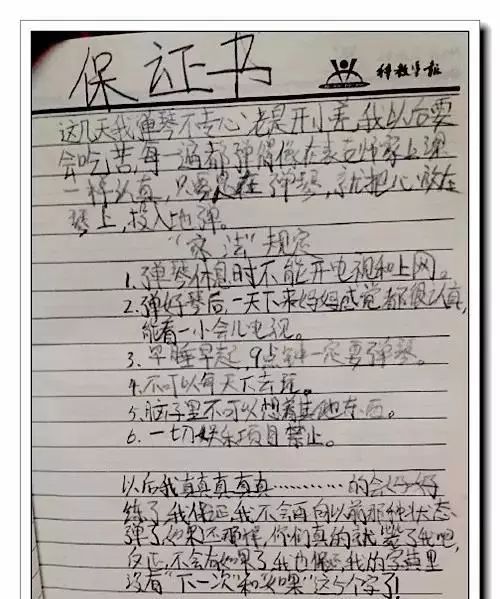 保证书
科教学报
这几天我弹琴不专心,老是开小差,我以后要
会吃苦,每一遍都弹得像在袁老师家上课
一样认真,只要是在弹琴,就把心放在
琴上,投入地弹。
“家法”规定
1. 弹琴休息时不能开电视和上网。
2. 弹好琴后,一天下来妈妈感觉都很认真,
能看一小会儿电视。
3. 早睡早起,9点钟一定要弹琴。
4. 不可以每天下去玩。
5. 脑子里不可以想着其他东西。
6. 一切娱乐项目禁止。
以后我真真真真真…………的会好好
练了,我保证,我不会再向以前那种状态
弹了,如果还那样,你们真的就揍了我吧,
反正,不会有如果了,我也保证,我的字典里
没有“下一次”和“如果”这5个字了!